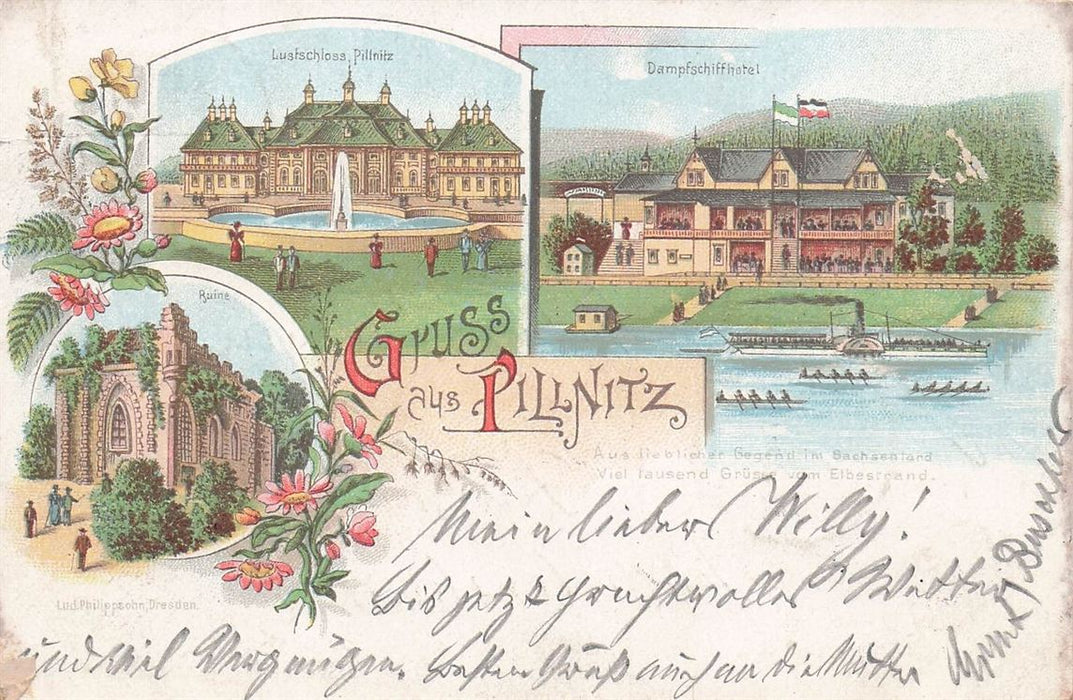 Lustschloss Pillnitz
Dampfschiffhotel
Ruine
Gruss
aus Pillnitz
Aus lieblicher Gegend im Sachsenland
Viel tausend Grüsse vom Elbestrand.
Mein lieber Willy!
Bis jetzt prachtvolles Wetter
und viel Vergnügen. Besten Gruß auch an die Mutter
Lud. Philippsohn, Dresden.